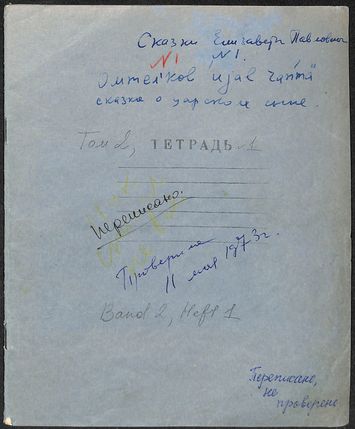 Сказки Елизаветы Павловны
N1 N1.
сказка о царском сыне.
Том 2, ТЕТРАДЬ 1
переписано.
Проверила
11 мая 1973 г.
Band 2, Heft 1
Переписано,
не
проверено